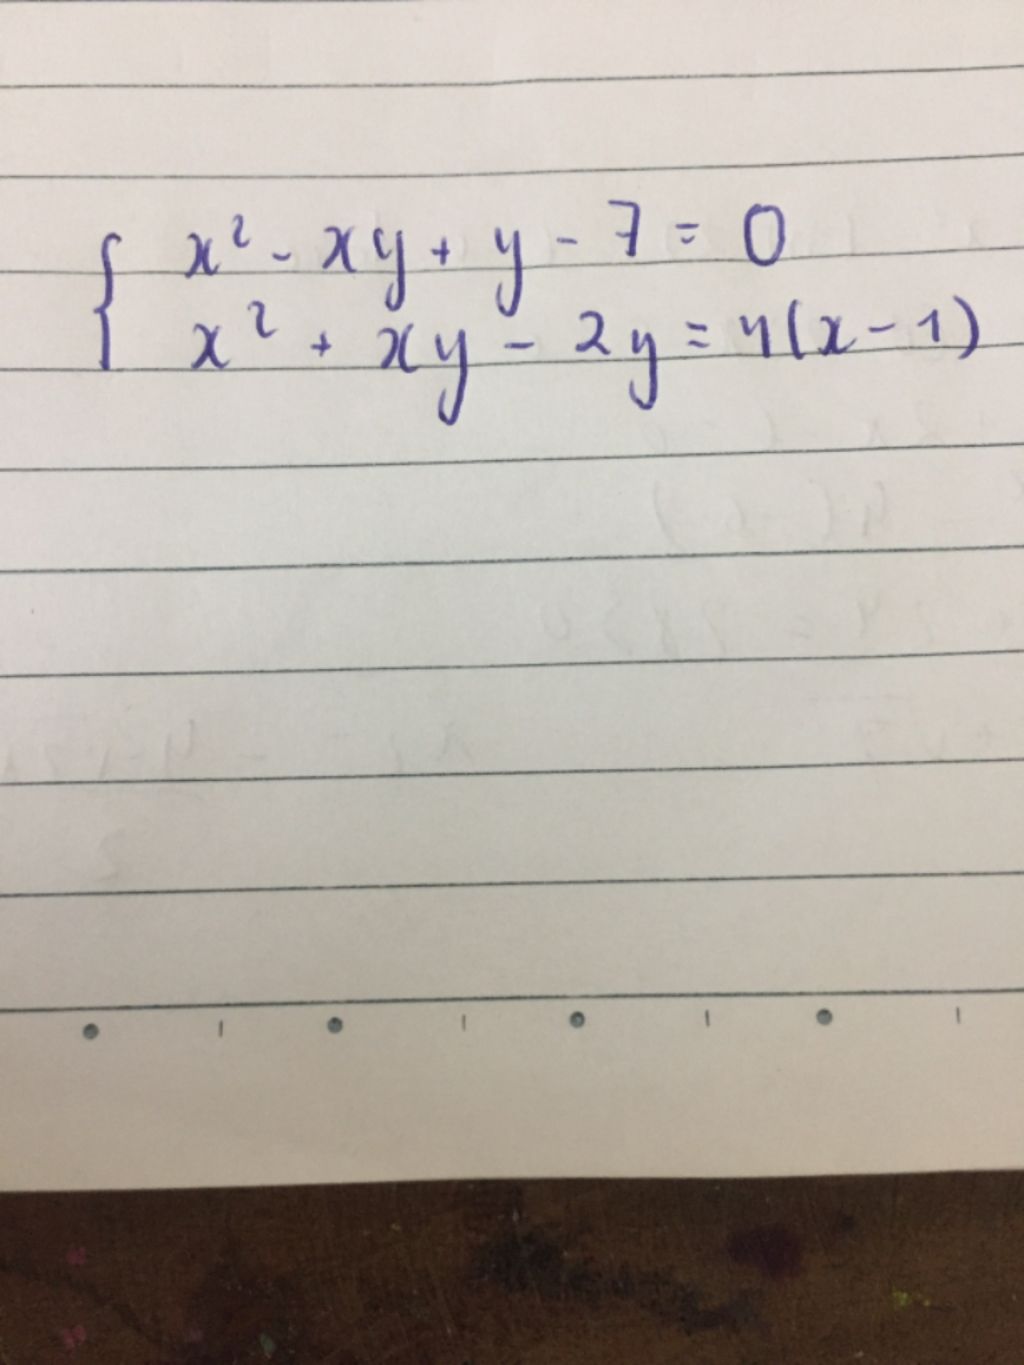 x² - xy + y - 7 = 0
x² + xy - 2y = 4(x - 1)